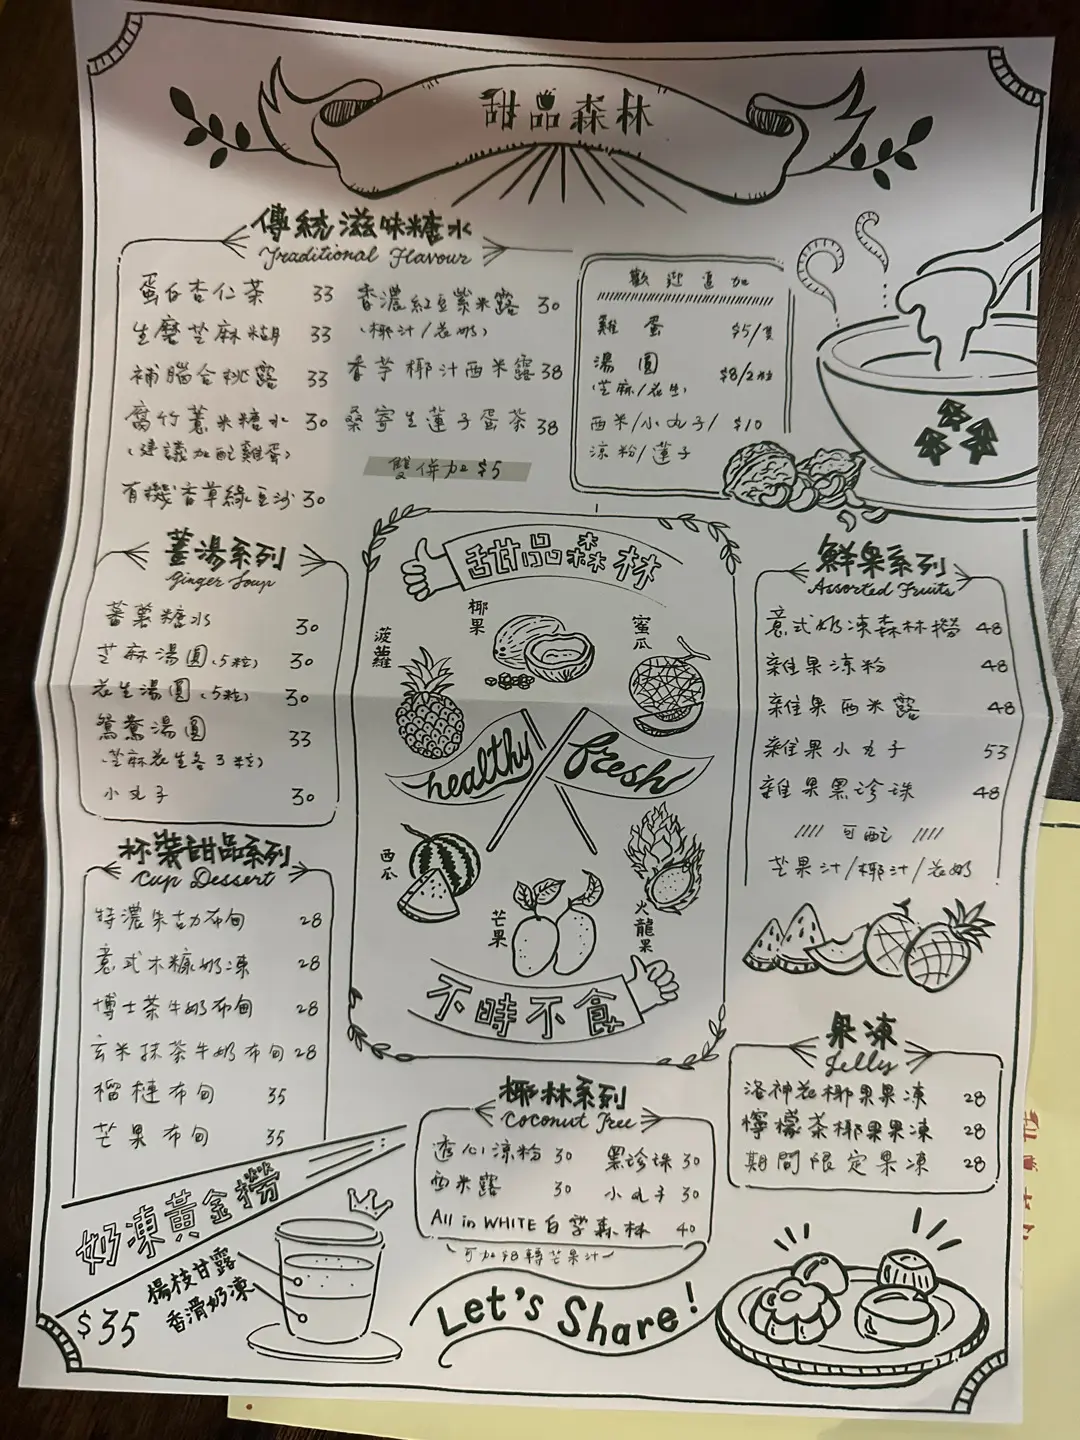 甜品森林
傳統滋味糖水
Traditional Flavour
蛋白杏仁茶 33
生磨芝麻糊 33
補腦合桃露 33
腐竹薏米糖水 30
(建議加配雞蛋)
有機香草綠豆沙 30
香濃紅豆紫米露 30
(椰汁/花奶)
香芋椰汁西米露 38
桑寄生蓮子蛋茶 38
雙併加$5
歡迎追加
雞蛋 $5/隻
湯圓 $8/2粒
(芝麻/花生)
西米/小丸子/ $10
涼粉/蓮子
薑湯系列
Ginger Soup
蕃薯糖水 30
芝麻湯圓(5粒) 30
花生湯圓(5粒) 30
鴛鴦湯圓 33
(芝麻花生各3粒)
小丸子 30
甜品森林
椰果
菠蘿
蜜瓜
healthy fresh
西瓜
芒果
火龍果
不時不食
鮮果系列
Assorted Fruits
意式奶凍森林撈 48
雜果涼粉 48
雜果西米露 48
雜果小丸子 53
雜果黑珍珠 48
//// 可配 ////
芒果汁/椰汁/花奶
杯裝甜品系列
Cup Dessert
特濃朱古力布甸 28
意式木糠奶凍 28
博士茶牛奶布甸 28
玄米抹茶牛奶布甸 28
榴槤布甸 35
芒果布甸 35
椰林系列
Coconut Tree
透心涼粉 30
黑珍珠 30
西米露 30
小丸子 30
All in WHITE 白雪森林 40
可加$8轉芒果汁
果凍
Jelly
洛神花椰果果凍 28
檸檬茶椰果果凍 28
期間限定果凍 28
奶凍黃金撈
楊枝甘露
香滑奶凍
$35
Let's Share!